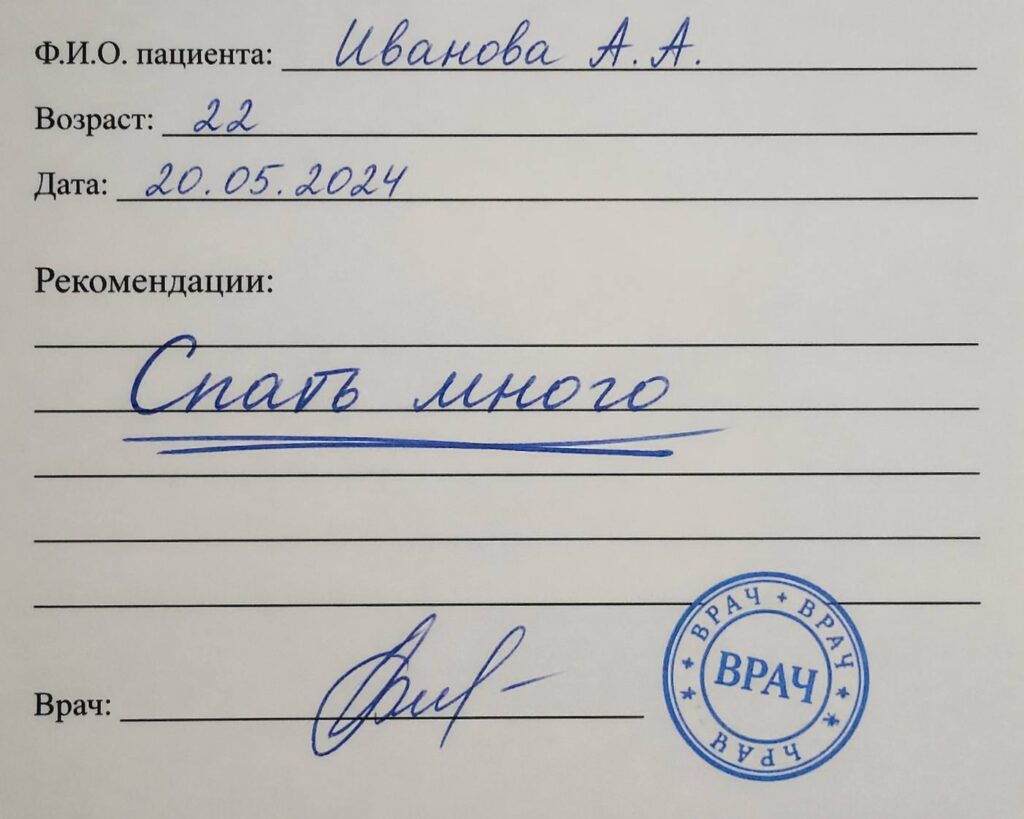 Ф.И.О. пациента: Иванова А. А.
Возраст: 22
Дата: 20.05.2024
Рекомендации:
Спать много
Врач:
ВРАЧ + ВРАЧ
ВРАЧ
ВРАЧ